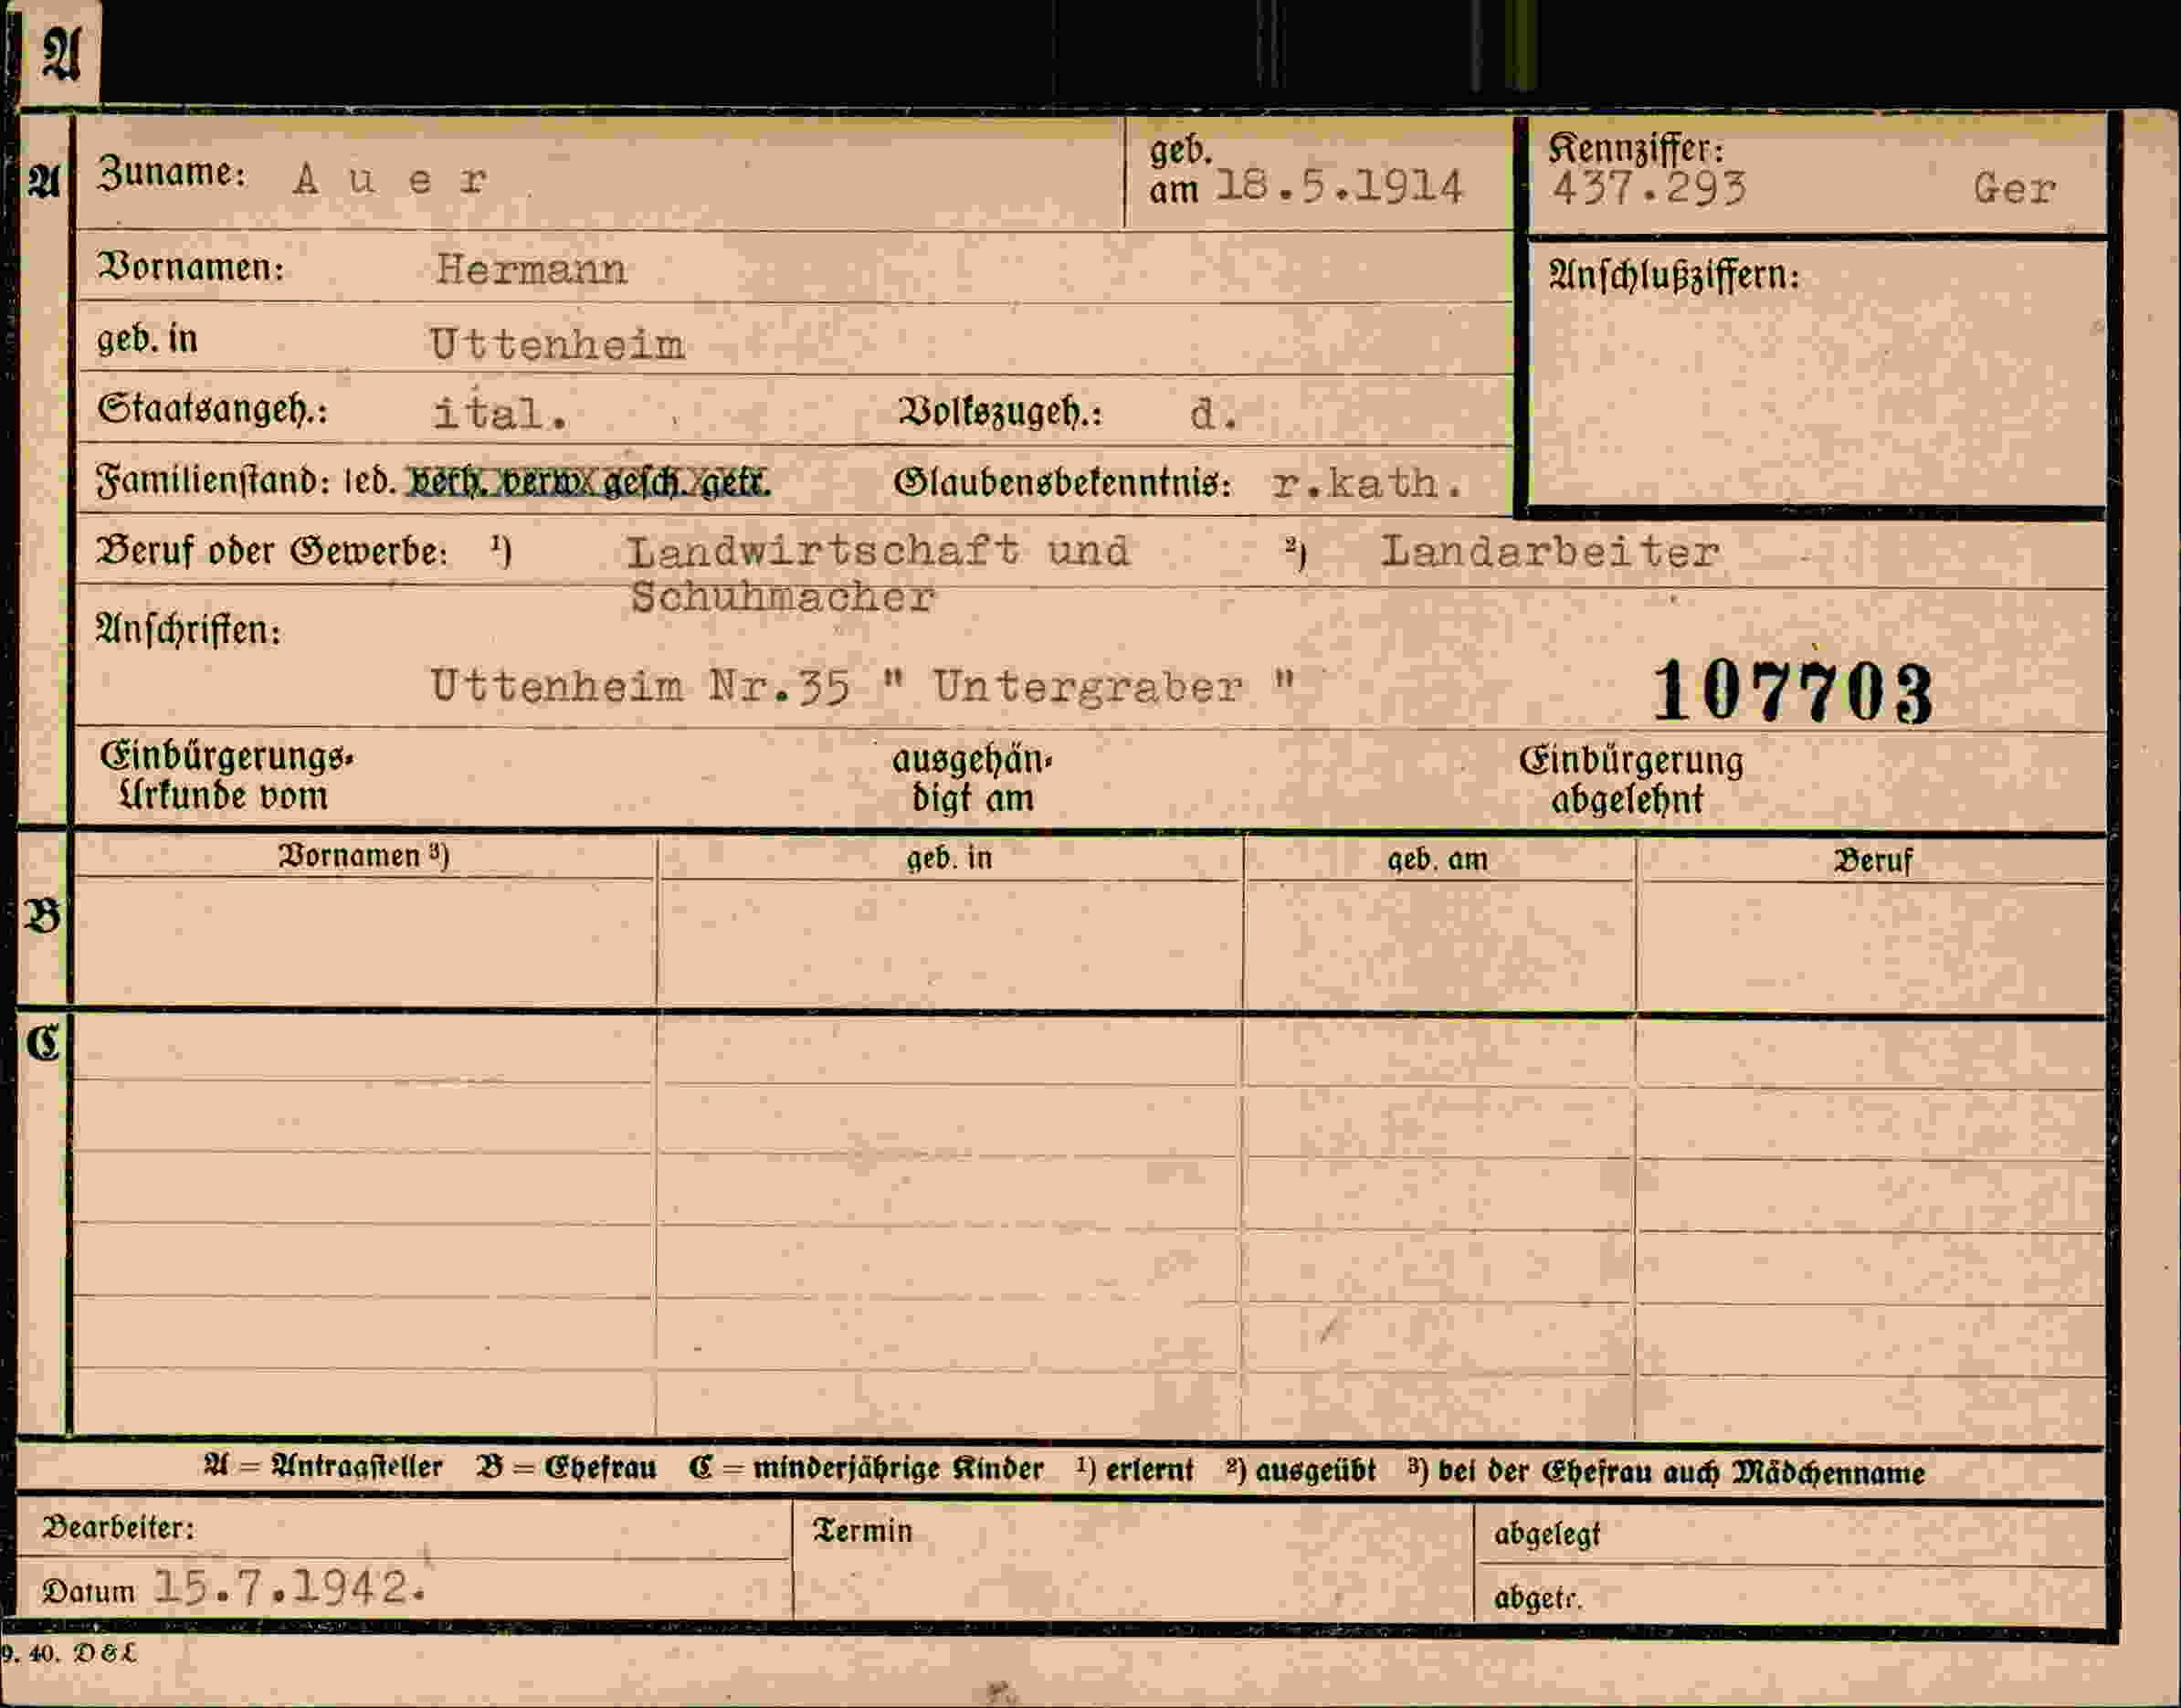 A
A Zuname: A u e r geb. am 18.5.1914 Kennziffer: 437.293 Ger
Vornamen: Hermann Anschlußziffern:
geb. in Uttenheim
Staatsangeh.: ital. Volkszugeh.: d.
Familienstand: led. verh. verw. gesch. getr. Glaubensbekenntnis: r.kath.
Beruf oder Gewerbe: ¹) Landwirtschaft und ²) Landarbeiter
Schuhmacher
Anschriften:
Uttenheim Nr.35 " Untergraber " 107703
Einbürgerungs- ausgehän- Einbürgerung
Urkunde vom digt am abgelehnt
Vornamen ³) geb. in geb. am Beruf
B
C
A = Antragsteller B = Ehefrau C = minderjährige Kinder ¹) erlernt ²) ausgeübt ³) bei der Ehefrau auch Mädchenname
Bearbeiter: Termin abgelegt
Datum 15.7.1942. abgetr.
9. 40. D & L